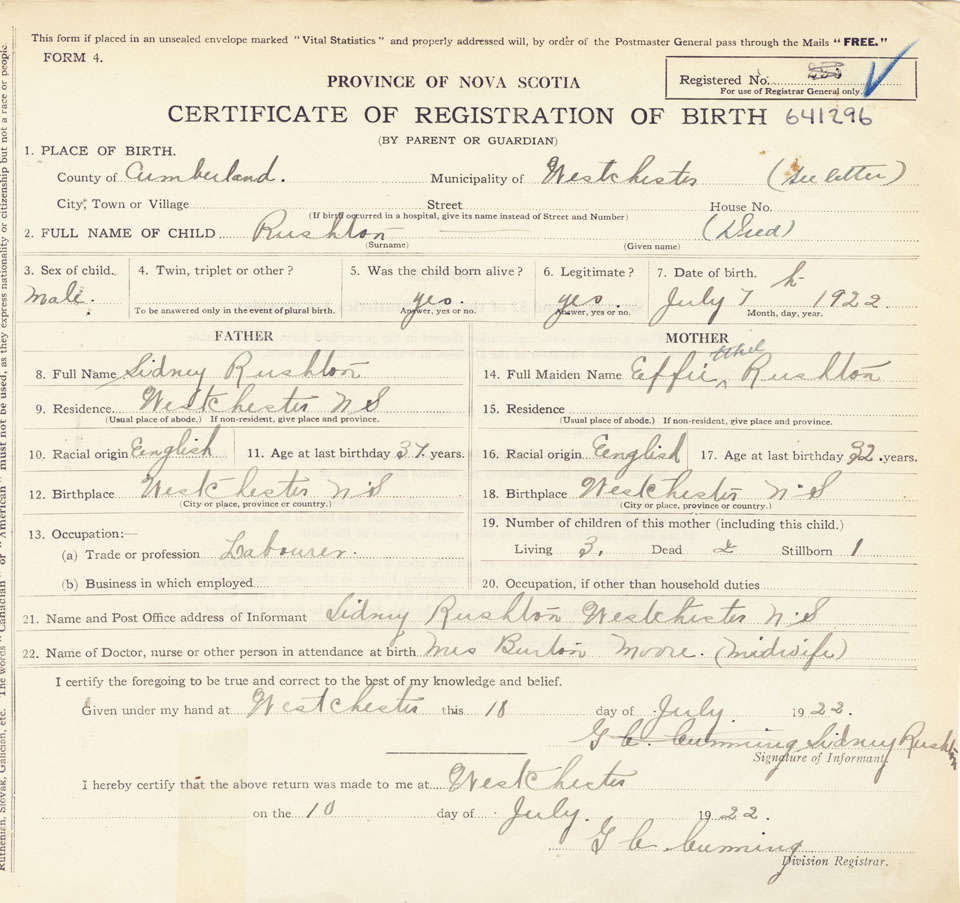 This form if placed in an unsealed envelope marked "Vital Statistics" and properly addressed will, by order of the Postmaster General pass through the Mails "FREE."
FORM 4.
Registered No.
For use of Registrar General only
PROVINCE OF NOVA SCOTIA
CERTIFICATE OF REGISTRATION OF BIRTH 641296
(BY PARENT OR GUARDIAN)
1. PLACE OF BIRTH.
County of Cumberland. Municipality of Westchester (See letter)
City, Town or Village Street House No.
(If birth occurred in a hospital, give its name instead of Street and Number)
2. FULL NAME OF CHILD Rushton (Died)
(Surname) (Given name)
3. Sex of child. 4. Twin, triplet or other? 5. Was the child born alive? 6. Legitimate? 7. Date of birth.
Male. yes. yes. July 7th 1922
To be answered only in the event of plural birth. Answer, yes or no. Answer, yes or no. Month, day, year.
FATHER MOTHER
8. Full Name Sidney Rushton 14. Full Maiden Name Effie Ethel Rushton
9. Residence Westchester N S 15. Residence
(Usual place of abode.) If non-resident, give place and province. (Usual place of abode.) If non-resident, give place and province.
10. Racial origin English 11. Age at last birthday 37. years. 16. Racial origin English 17. Age at last birthday 32. years.
12. Birthplace Westchester N.S 18. Birthplace Westchester N.S
(City or place, province or country.) (City or place, province or country.)
13. Occupation:— 19. Number of children of this mother (including this child.)
(a) Trade or profession Labourer. Living 3. Dead Stillborn 1
(b) Business in which employed 20. Occupation, if other than household duties
21. Name and Post Office address of Informant Sidney Rushton Westchester N.S
22. Name of Doctor, nurse or other person in attendance at birth Mrs Burton Moore. (Midwife)
I certify the foregoing to be true and correct to the best of my knowledge and belief.
Given under my hand at Westchester this 10 day of July. 1922.
G C. Cumming Sidney Rushton
Signature of Informant.
I hereby certify that the above return was made to me at Westchester
on the 10 day of July. 1922.
G C Cumming
Division Registrar.
Ruthenian, Slovak, Galician, etc. The words "Canadian" or "American" must not be used, as they express nationality or citizenship but not a race or people.